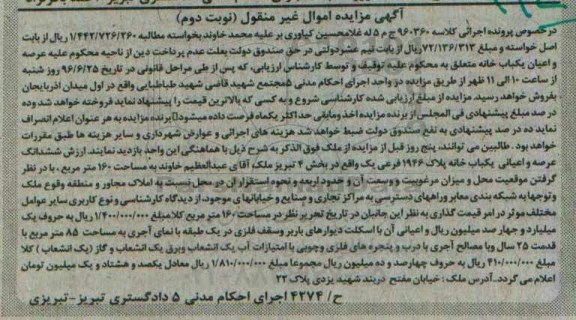 آگهی مزایده اموال غیر منقول (نوبت دوم)
درخصوص پرونده اجرائی کلاسه ۹۶۰۳۶۰ ج م ۵ له غلامحسین کیاوری بر علیه محمد خاوند بخواسته مطالبه ۱/۴۴۲/۷۲۶/۲۶۰ ریال از بابت
اصل خواسته و مبلغ ۷۲/۱۳۶/۳۱۳ ریال از بابت نیم عشر دولتی در حق صندوق دولت بعلت عدم پرداخت دین از ناحیه محکوم علیه عرصه
و اعیان یکباب خانه متعلق به محکوم علیه توقیف و توسط کارشناس ارزیابی، که پس از طی مراحل قانونی در تاریخ ۹۶/۶/۲۵ روز شنبه
از ساعت ۱۰ الی ۱۱ ظهر از طریق مزایده در واحد اجرای احکام مدنی ۵ مجتمع شهید قاضی شهید طباطبایی واقع در اول میدان اذربایجان
بفروش خواهد رسید. مزایده از مبلغ ارزیابی شده کارشناسی شروع و به کسی که بالاترین قیمت را پیشنهاد نماید فروخته خواهد شد وده
در صد مبلغ پیشنهادی فی المجلس از برنده مزایده اخذ ومابقی حداکثر یکماه فرصت داده میشود برنده مزایده به هر عنوان اعلام انصراف
نماید ده در صد پیشنهادی به نفع صندوق دولت ضبط خواهد شد هزینه های اجرائی و عوارض شهرداری و سایر هزینه ها طبق مقررات
خواهد بود . طالبین می توانند، پنج روز قبل از مزایده از ملک فوق الذکر به شرح ذیل با هماهنگی این واحد بازدید نمایند. ارزش ششدانگ
عرصه و اعیانی یکباب خانه پلاک ۱۹۴۶ فرعی یک واقع در بخش ۴ تبریز ملک آقای عبدالعظیم خاوند به مساحت ۱۶۰ متر مربع ، با در نظر
گرفتن موقعیت محل و میزان مرغوبیت و وسعت آن و حدود اربعه و نحوه استقرار ان در محل نسبت به املاک مجاور و منطقه وقوع ملک
و توجها به شبکه بندی معابر وراههای دسترسی به مراکز تجاری و صنایع و خیابانهای موجود، از دیدگاه کارشناسی و نوع کاربری سایر عوامل
مختلف موثر در امر قیمت گذاری به نظر این جانبان در تاریخ تحریر نظر در مساحت ۱۶۰ متر مربع کلا مبلغ ۱/۴۰۰/۰۰۰/۰۰۰ ریال به حروف یک
میلیارد و چهار صد میلیون ریال و اعیانی آن با اسکلت دیوارهای باربر وسقف فلزی در یک طبقه با نمای آجری به مساحت ۸۵ متر مربع با
قدمت ۲۵ سال وبا مصالح آجری با درب و پنجره های فلزی وچوبی با امتیازات آب یک انشعاب وبرق یک انشعاب و گاز (یک انشعاب) کلا
مبلغ ۴۱۰/۰۰۰/۰۰۰ ریال به حروف چهارصد و ده میلیون ریال مجموعا مبلغ ۱/۸۱۰/۰۰۰/۰۰۰ ریال معادل یکصد و هشتاد و یک میلیون تومان
اعلام می گردد..آدرس ملک : خیابان مفتح دربند شهید یزدی پلاک ۲۲
ح/ ۴۲۷۴ اجرای احکام مدنی ۵ دادگستری تبریز-تبریزی